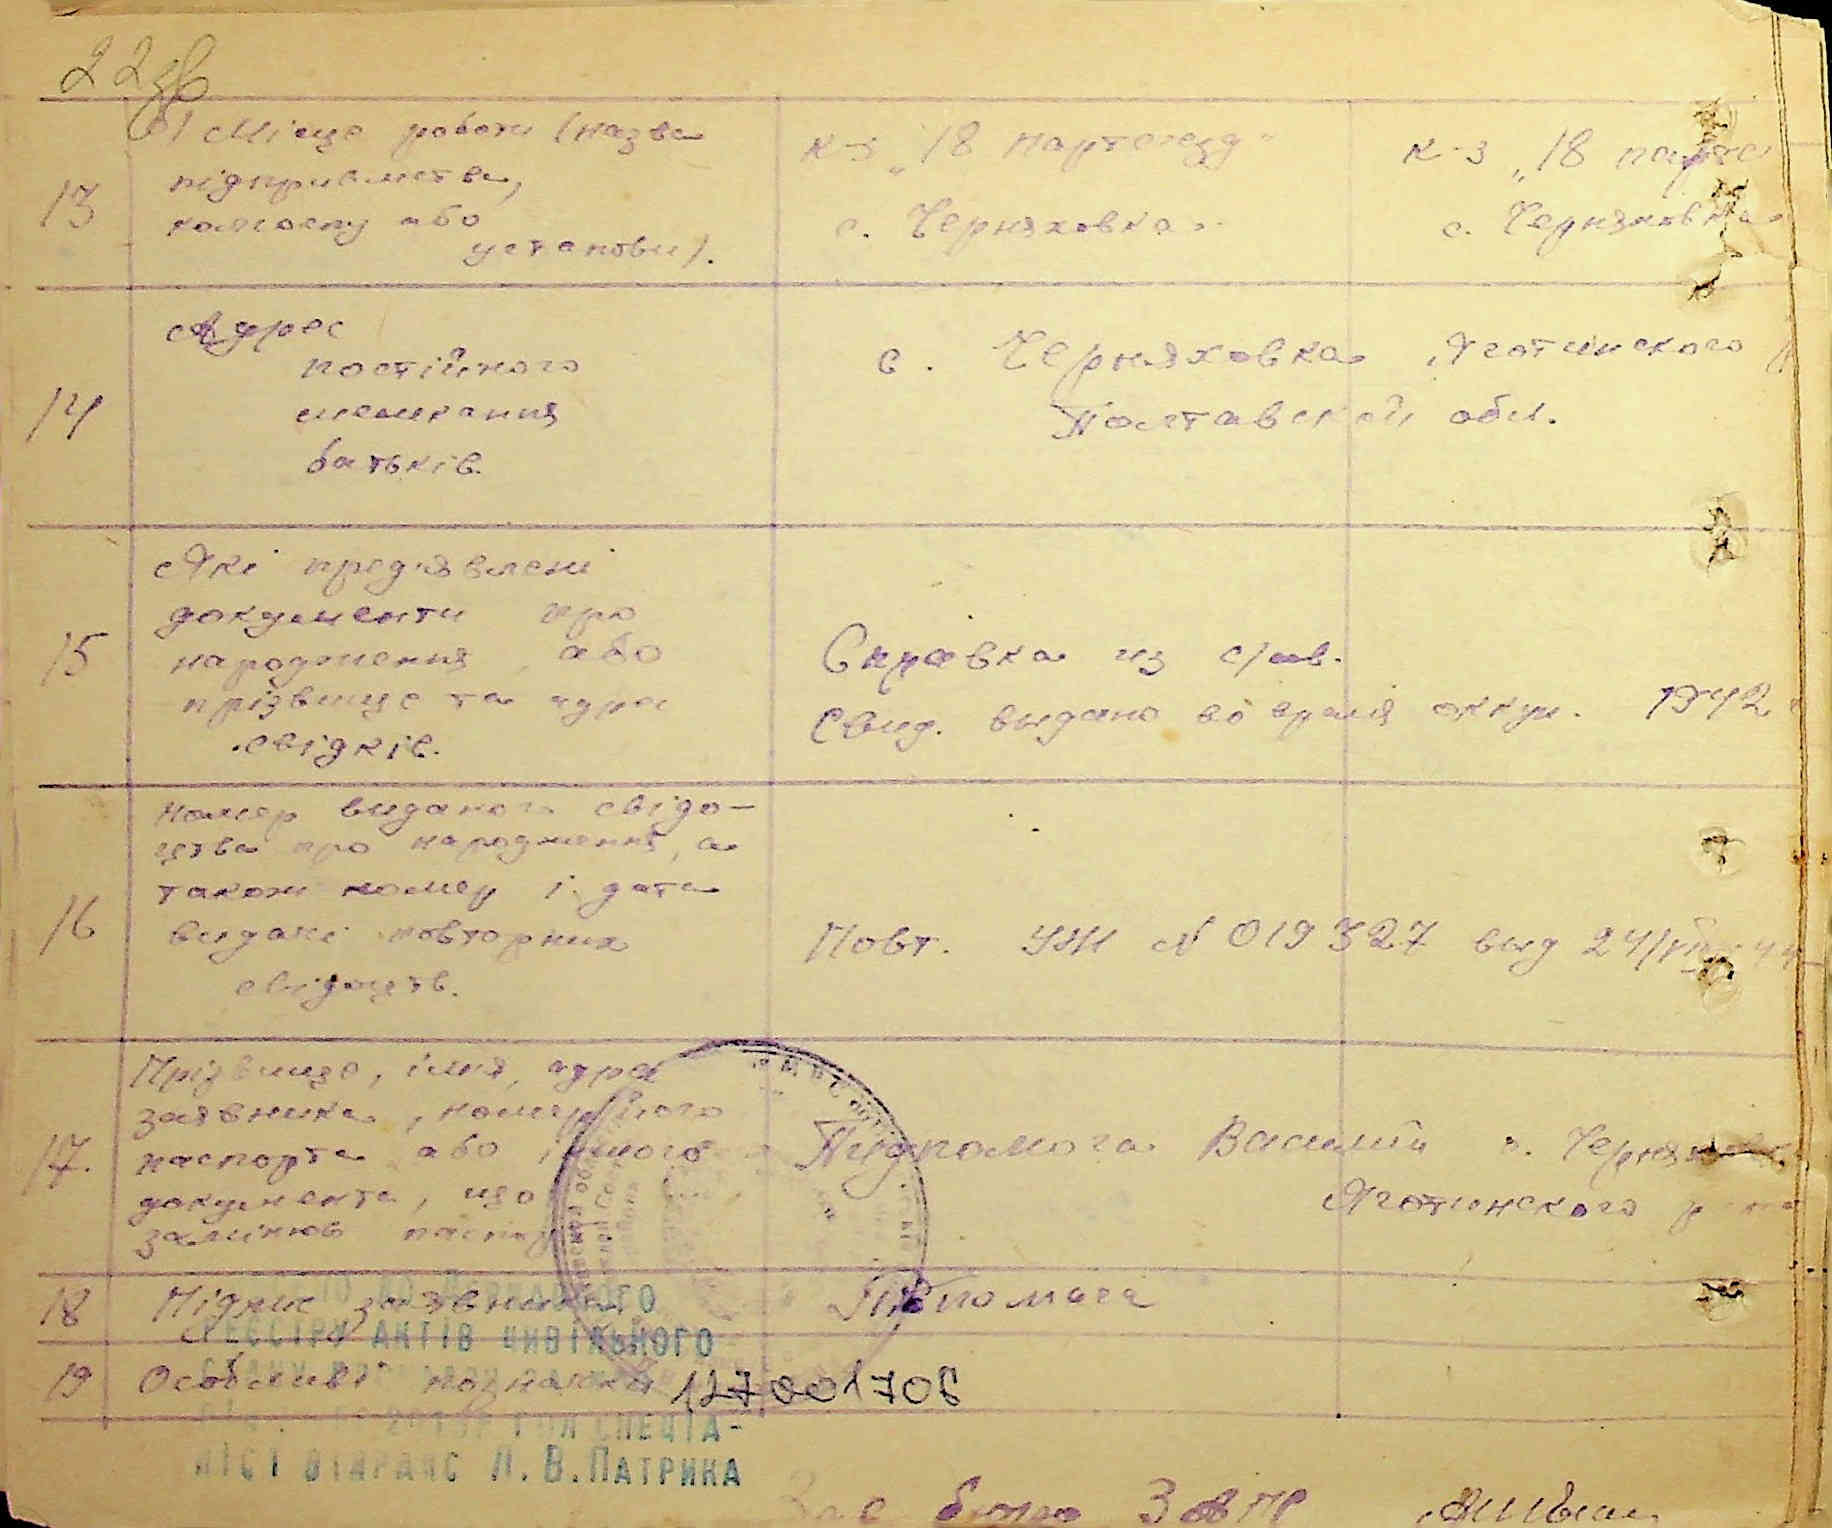 22зв
13
Місце роботи (назва
підприємства,
колгоспу або
установи).
к-з „18 партсъезд"
с. Черняховка.
к-з „18 парт
с. Черняховка
14
Адрес
постійного
мешкання
батьків.
с. Черняховка Яготинского
Полтавской обл.
15
Які пред'явлені
документи про
народження, або
прізвище та адреса
свідків.
Справка из с/
Свид. выдано во время оккуп. 1942
16
Номер виданого свідо-
цтва про народження, а
також номер і дата
видачі повторних
свідоцтв.
Повт. УЖ N 019327 выд 24/
17.
Прізвище, імя, адреса
заявника, номер його
паспорта або іншого
документа, що
замінює паспорт
Пидпомога Василий с. Черняховка
Яготинского р-на
18
Підпис заявника
19
Особливі позначки
127001706
РЕЄСТРУ АКТІВ ЦИВІЛЬНОГО
СПЕЦІА-
ЛІСТ ВІДРАЦС Л.В.ПАТРИКА
Зав бюро ЗАГС